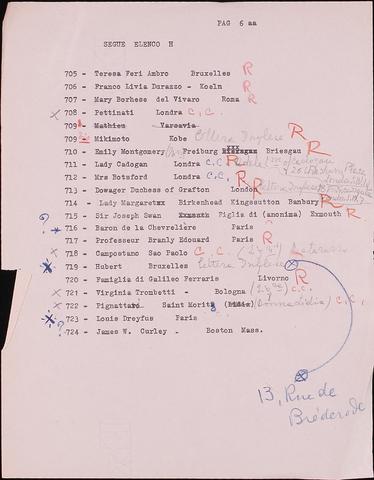 PAG 6 aa
SEGUE ELENCO H
705 - Teresa Feri Ambro Bruxelles R
706 - Franco Livia Durazzo - Koeln R
707 - Mary Borhese del Vivaro Roma R
x 708 - Pettinati Londra C.C.
709 - Mathieu Varsavia
709 - Mikimoto Kobe lettera Inglese R
710 - Emily Montgomery Freiburg Briesgau R
711 - Lady Cadogan Londra C.C. R
712 - Mrs Botsford Londra C.C. R
713 - Dowager Duchess of Grafton London R lettera Inglese
714 - Lady Margaret Birkenhead Kingssutton Banbury R
715 - Sir Joseph Swan Figlia di (anonima) Exmouth R
? * 716 - Baron de la Chevrelière Paris
717 - Professeur Branly Edouard Paris R
x 718 - Campostano Sao Paolo C.C.
? * 719 - Hubert Bruxelles lettera Inglese
720 - Famiglia di Galileo Ferraris Livorno R
x 721 - Virginia Trombetti - Bologna C.C.
x 722 - Pignattare Saint Moritz (Donna Lidia) C.C.
? * 723 - Louis Dreyfus Paris
724 - James W. Curley - Boston Mass.
13, Rue de
Bréderode